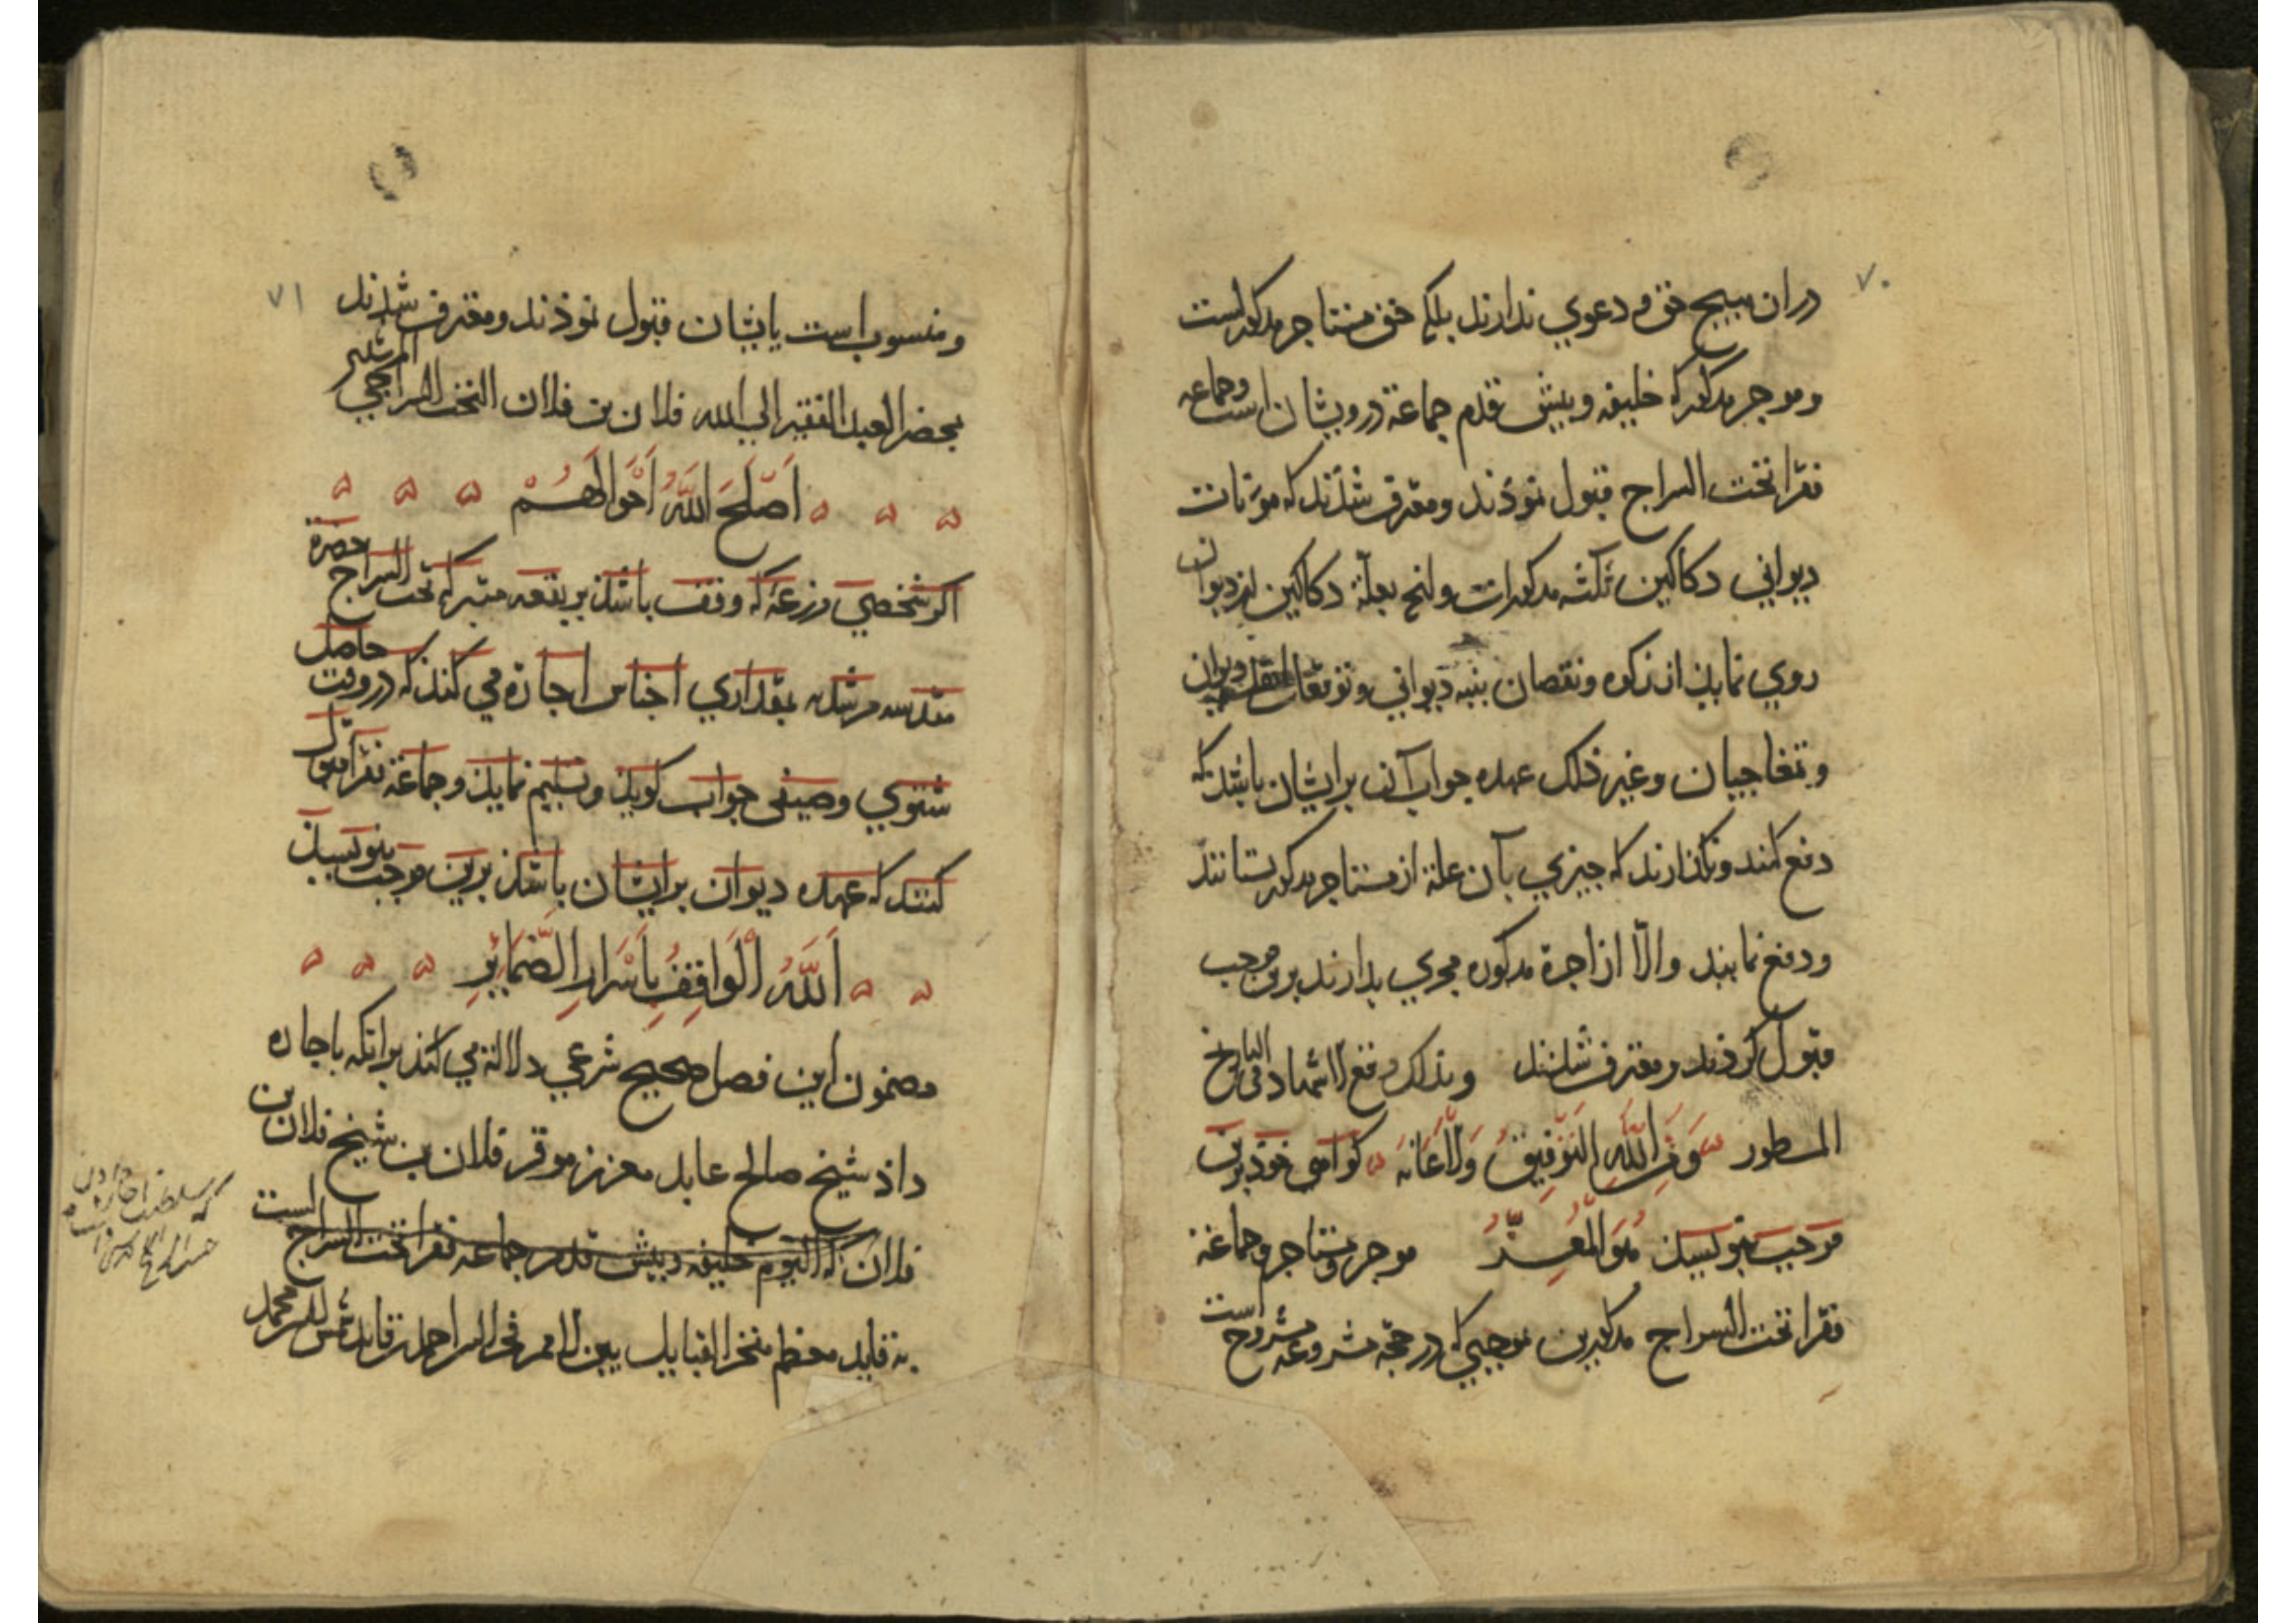 ۷۰
در ان هیچ حق و دعوی ندارند بلکه حق مستاجر مذکورست
وموجر مذکور که خلیفه وپیش قدم جماعة درویشان است وجماعه
فقرا تخت السراج قبول نموذند ومعترف شذند که مؤنات
دیوانی دکاکین ثلثه مذکورات وانچ بعلّة دکاکین از دیوان
روی نماید از زکوه ونقصان بنبه دیوانی وتوقعات دیوان
وتمغاجیان وغیر ذلک عهده جواب آن بر ایشان باشد که
دفع کنند ونگذارند که چیزی بآن علة از مستاجر مذکور بستانند
ودفع نمایند والّا از اجرة مذکوره مجری بدارند برین موجب
قبول کردند ومعترف شدند وبذلک وقع الاشهاد فی التاریخ
المسطور وَمِنَ اللّٰهِ التَّوْفِیقُ وَالْاِعَانَه کواهی خوذ برین
موجب بنویسد هُوَ الْمُعِزُّ موجر ومستاجر وجماعة
فقرا تخت السراج مذکورین بموجبی که در حجّة مشروعه مشروح است
۷۱
ومنسوب است بایشان قبول نموذند ومعترف شدند
بمحضر العبد الفقیر الی الله فلان بن فلان التخت السراجی المرشدی
اَصْلَحَ اللّٰهُ اَحْوَالَهُمْ
اکر شخصی مزرعهٔ که وقف باشد بر بقعه متبرکه تخت السراج حضرة
مقدسه مرشدیه بمقداری اجناس اجاره می کند که در وقت حاصل
شتوی وصیفی جواب کوید وتسلیم نماید وجماعة فقرا قبول
کنند که عهده دیوان بر ایشان باشد برین موجب بنویسد
اَللّٰهُ الْوَاقِفُ بِاَسْرَارِ الضَّمَایِرِ
مضمون این فصل صحیح شرعی دلالة می کند بر انکه باجاره
داذ شیخ صالح عابد معزز موقر فلان بن شیخ فلان بن
فلان که الیوم خلیفه وپیش قدم جماعه فقرا تخت السراج است
به قاید معظم مفخر القبایل بین الامم فخر السراحمد بن قاید شمس الدین محمد